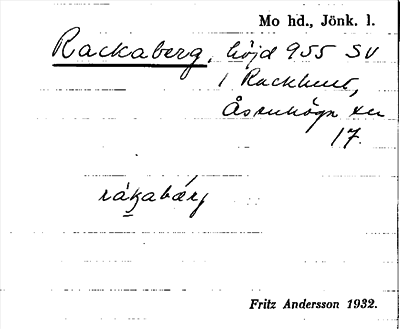 Mo hd., Jönk. l.
Rackaberg, höjd 955 SV
i Rackhult,
Åsenhöga sn
17.
råkabärj
Fritz Andersson 1932.